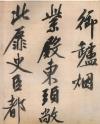 御鑪烟
紫殿東頭敞
北扉史臣都